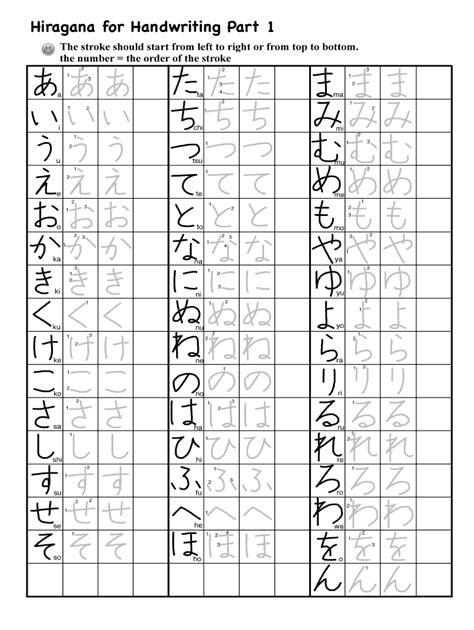 Hiragana for Handwriting Part 1
The stroke should start from left to right or from top to bottom.
the number = the order of the stroke
あ a あ あ た ta た た ま ma ま ま
い i い い ち chi ち ち み mi み み
う u う う つ tsu つ つ む mu む む
え e え え て te て て め me め め
お o お お と to と と も mo も も
か ka か か な na な な や ya や や
き ki き き に ni に に ゆ yu ゆ ゆ
く ku く く ぬ nu ぬ ぬ よ yo よ よ
け ke け け ね ne ね ね ら ra ら ら
こ ko こ こ の no の の り ri り り
さ sa さ さ は ha は は る ru る る
し shi し し ひ hi ひ ひ れ re れ れ
す su す す ふ fu ふ ふ ろ ro ろ ろ
せ se せ せ へ he へ へ わ wa わ わ
そ so そ そ ほ ho ほ ほ を o を を
ん ん ん